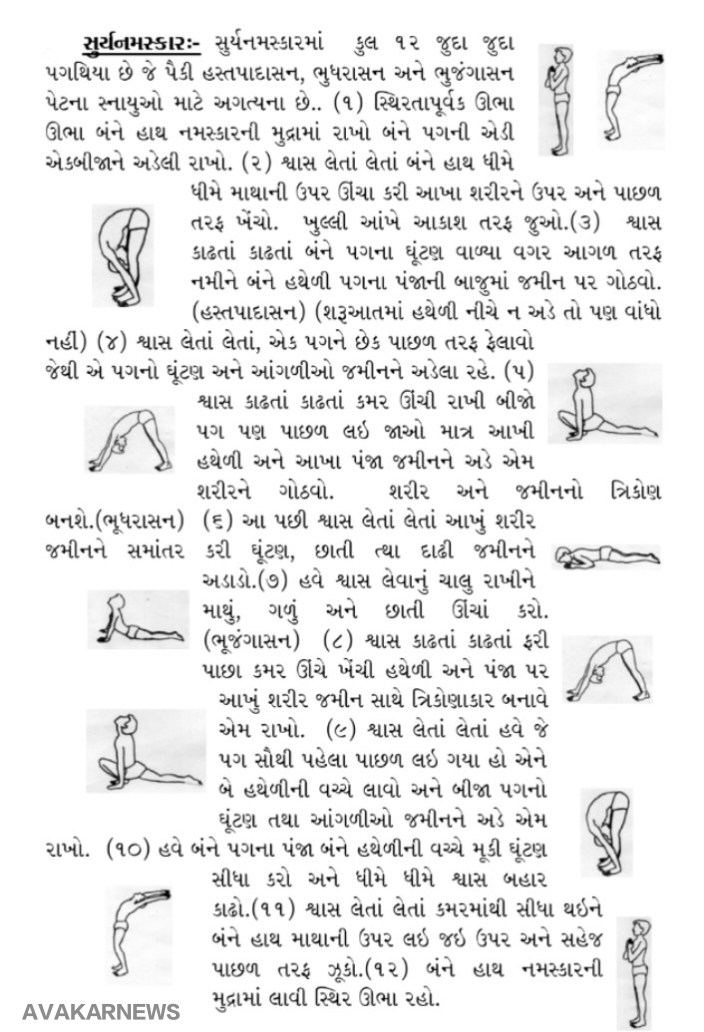 સુર્યનમસ્કારઃ- સુર્યનમસ્કારમાં કુલ ૧૨ જુદા જુદા
પગથિયા છે જે પૈકી હસ્તપાદાસન, ભુધરાસન અને ભુજંગાસન
પેટના સ્નાયુઓ માટે અગત્યના છે.. (૧) સ્થિરતાપૂર્વક ઊભા
ઊભા બંને હાથ નમસ્કારની મુદ્રામાં રાખો બંને પગની એડી
એકબીજાને અડેલી રાખો. (૨) શ્વાસ લેતાં લેતાં બંને હાથ ધીમે
ધીમે માથાની ઉપર ઊંચા કરી આખા શરીરને ઉપર અને પાછળ
તરફ ખેંચો. ખુલ્લી આંખે આકાશ તરફ જુઓ.(૩) શ્વાસ
કાઢતાં કાઢતાં બંને પગના ઘૂંટણ વાળ્યા વગર આગળ તરફ
નમીને બંને હથેળી પગના પંજાની બાજુમાં જમીન પર ગોઠવો.
(હસ્તપાદાસન) (શરૂઆતમાં હથેળી નીચે ન અડે તો પણ વાંધો
નહીં) (૪) શ્વાસ લેતાં લેતાં, એક પગને છેક પાછળ તરફ ફેલાવો
જેથી એ પગનો ઘૂંટણ અને આંગળીઓ જમીનને અડેલા રહે. (૫)
શ્વાસ કાઢતાં કાઢતાં કમર ઊંચી રાખી બીજો
પગ પણ પાછળ લઇ જાઓ માત્ર આખી
હથેળી અને આખા પંજા જમીનને અડે એમ
શરીરને ગોઠવો. શરીર અને જમીનનો ત્રિકોણ
બનશે.(ભૂધરાસન) (૬) આ પછી શ્વાસ લેતાં લેતાં આખું શરીર
જમીનને સમાંતર કરી ઘૂંટણ, છાતી ત્થા દાઢી જમીનને
અડાડો.(૭) હવે શ્વાસ લેવાનું ચાલુ રાખીને
માથું, ગળું અને છાતી ઊંચાં કરો.
(ભૂજંગાસન) (૮) શ્વાસ કાઢતાં કાઢતાં ફરી
પાછા કમર ઊંચે ખેંચી હથેળી અને પંજા પર
આખું શરીર જમીન સાથે ત્રિકોણાકાર બનાવે
એમ રાખો. (૯) શ્વાસ લેતાં લેતાં હવે જે
પગ સૌથી પહેલા પાછળ લઇ ગયા હો એને
બે હથેળીની વચ્ચે લાવો અને બીજા પગનો
ઘૂંટણ તથા આંગળીઓ જમીનને અડે એમ
રાખો. (૧૦) હવે બંને પગના પંજા બંને હથેળીની વચ્ચે મૂકી ઘૂંટણ
સીધા કરો અને ધીમે ધીમે શ્વાસ બહાર
કાઢો.(૧૧) શ્વાસ લેતાં લેતાં કમરમાંથી સીધા થઇને
બંને હાથ માથાની ઉપર લઇ જઇ ઉપર અને સહેજ
પાછળ તરફ ઝૂકો.(૧૨) બંને હાથ નમસ્કારની
મુદ્રામાં લાવી સ્થિર ઊભા રહો.
AVAKARNEWS